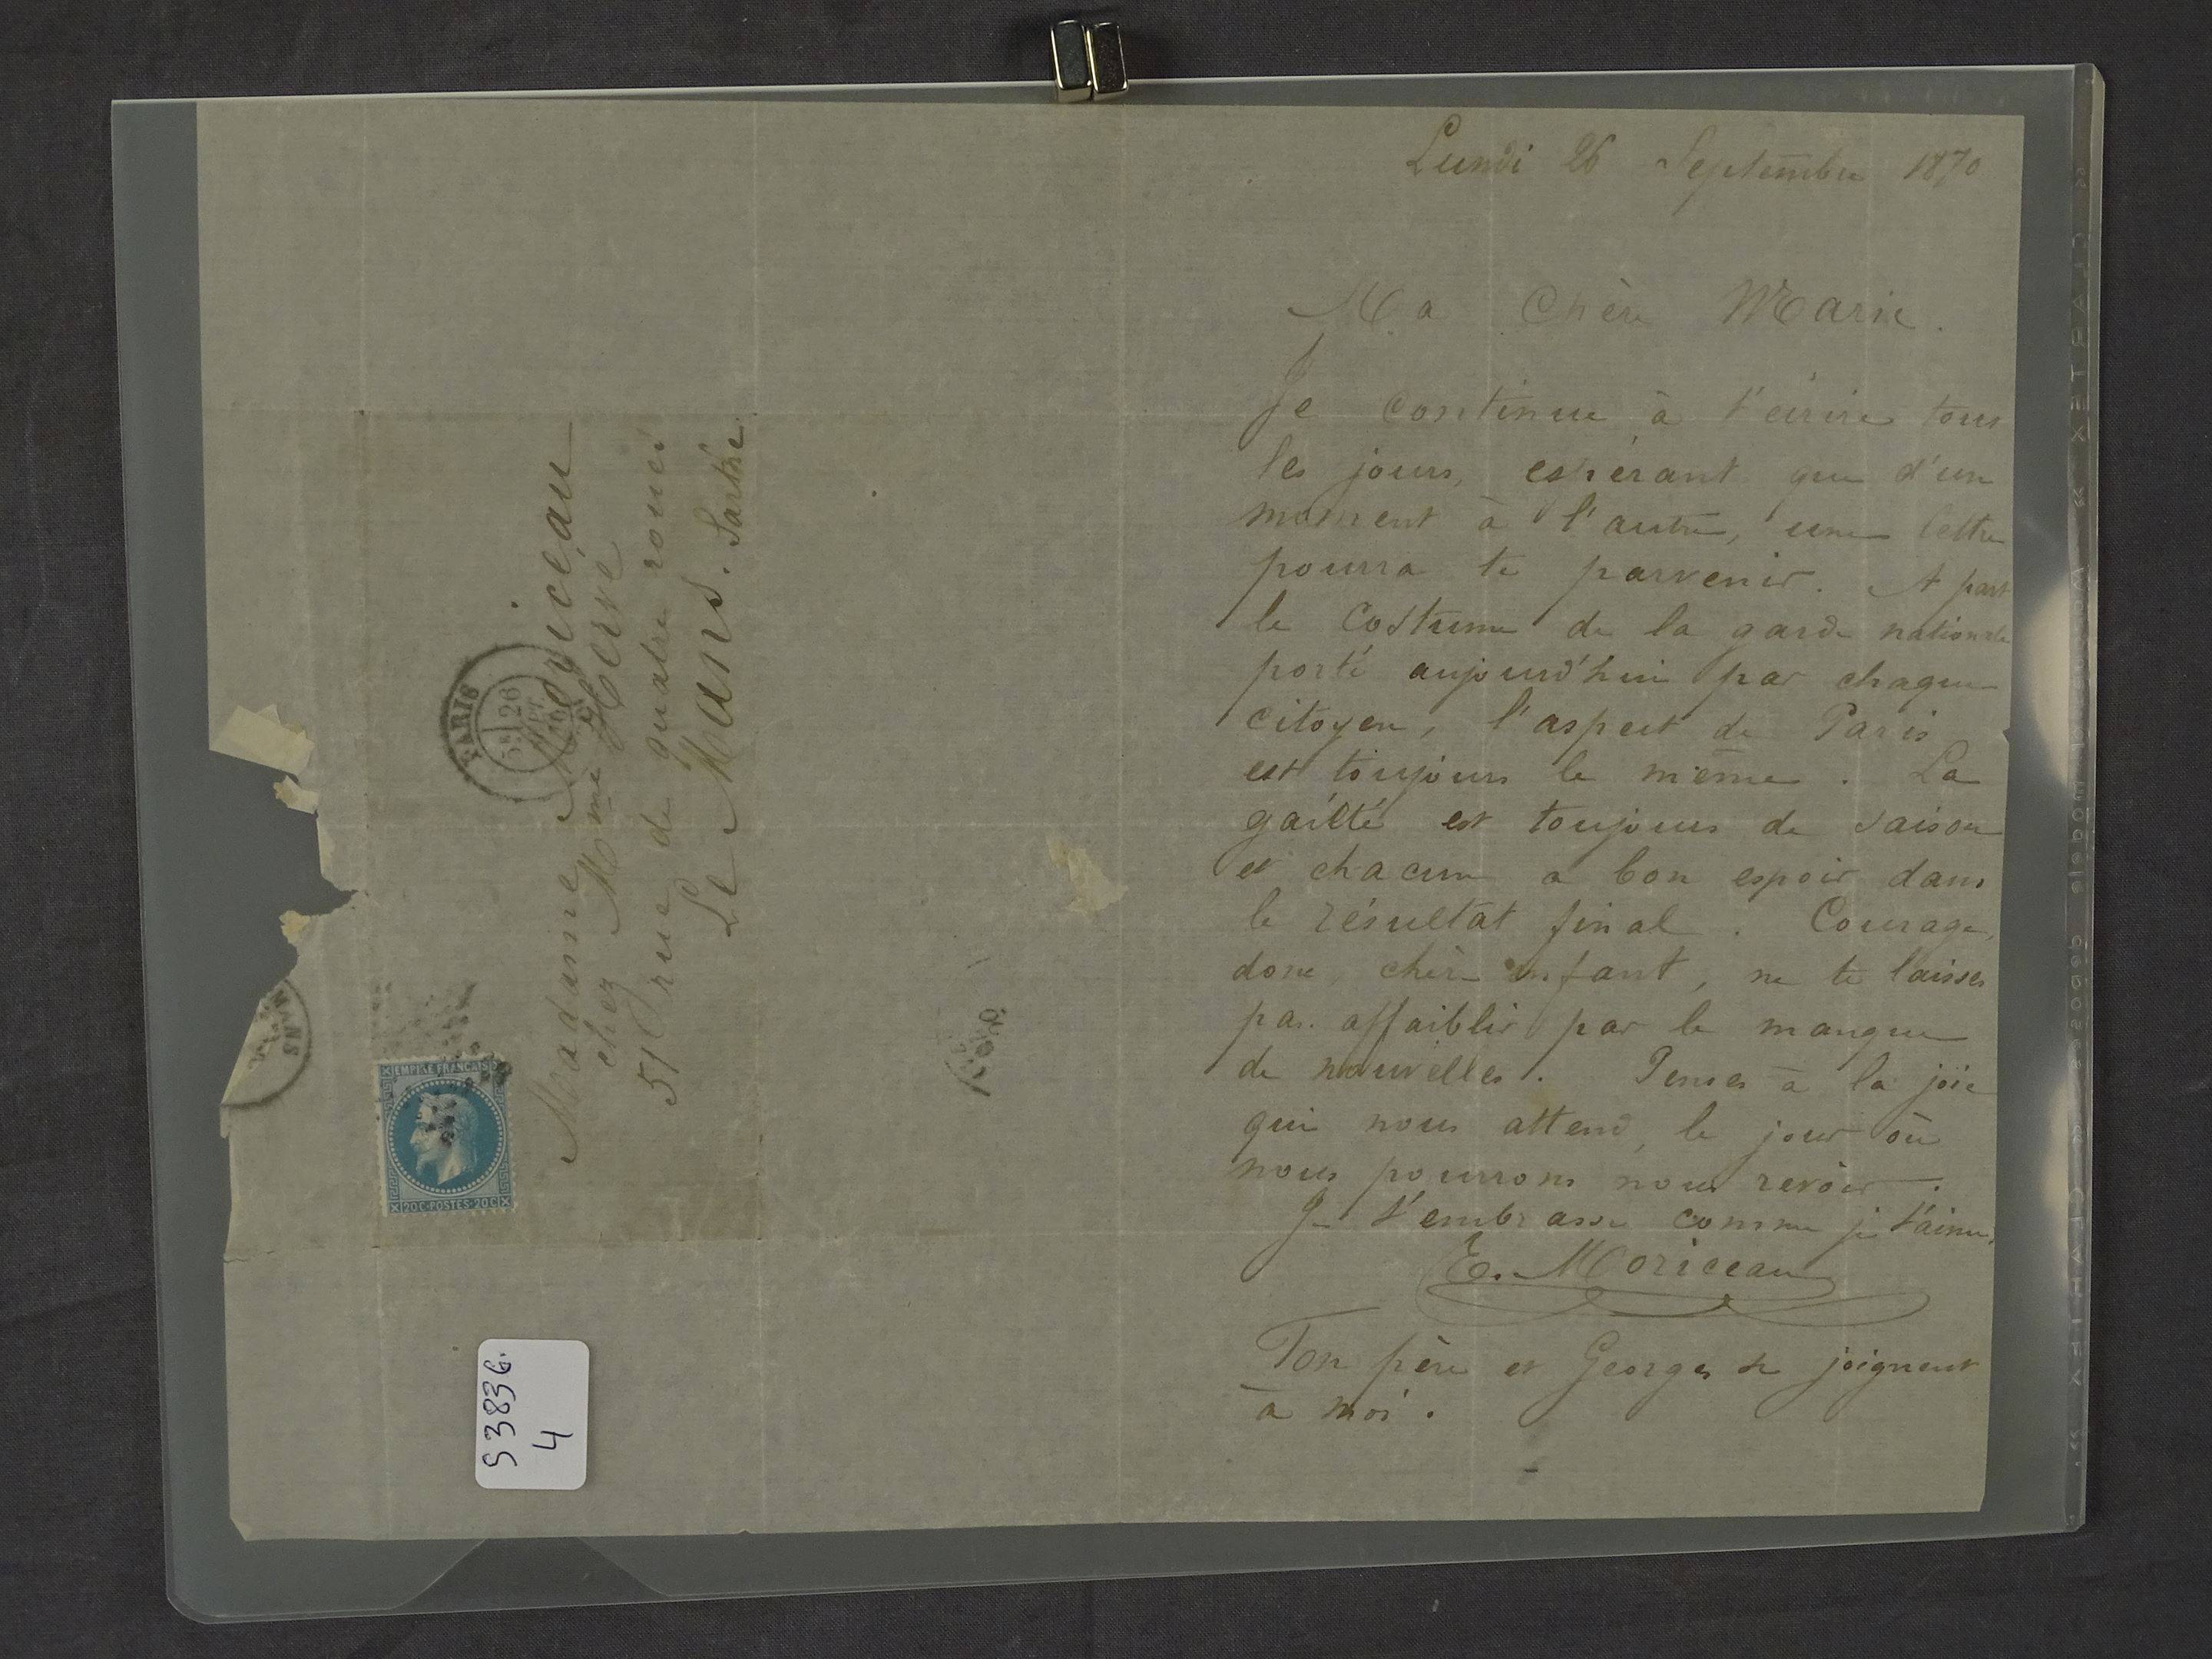 Lundi 26 Septembre 1870
Ma Chère Marie.
Je continue à t'écrire tous
les jours, espérant que d'un
moment à l'autre, une lettre
pourra te parvenir. A part
le Costume de la garde nationale
porté aujourd'hui par chaque
citoyen, l'aspect de Paris
est toujours le même. La
gaîté est toujours de saison
et chacun a bon espoir dans
le résultat final. Courage,
donc, chère enfant, ne te laisses
pas affaiblir par le manque
de nouvelles. Penses à la joie
qui nous attend, le jour où
nous pourrons nous revoir.
Je t'embrasse comme je t'aime,
E. Moriceau
Ton père et Georges se joignent
à moi.
Madame Moriceau
chez Mme Hervé
51 rue de quatre roues
Le Mans. Sarthe
PARIS
5E 26
SEPT.
70
EMPIRE FRANÇAIS
20C·POSTES·20C
MANS
S3836.
4